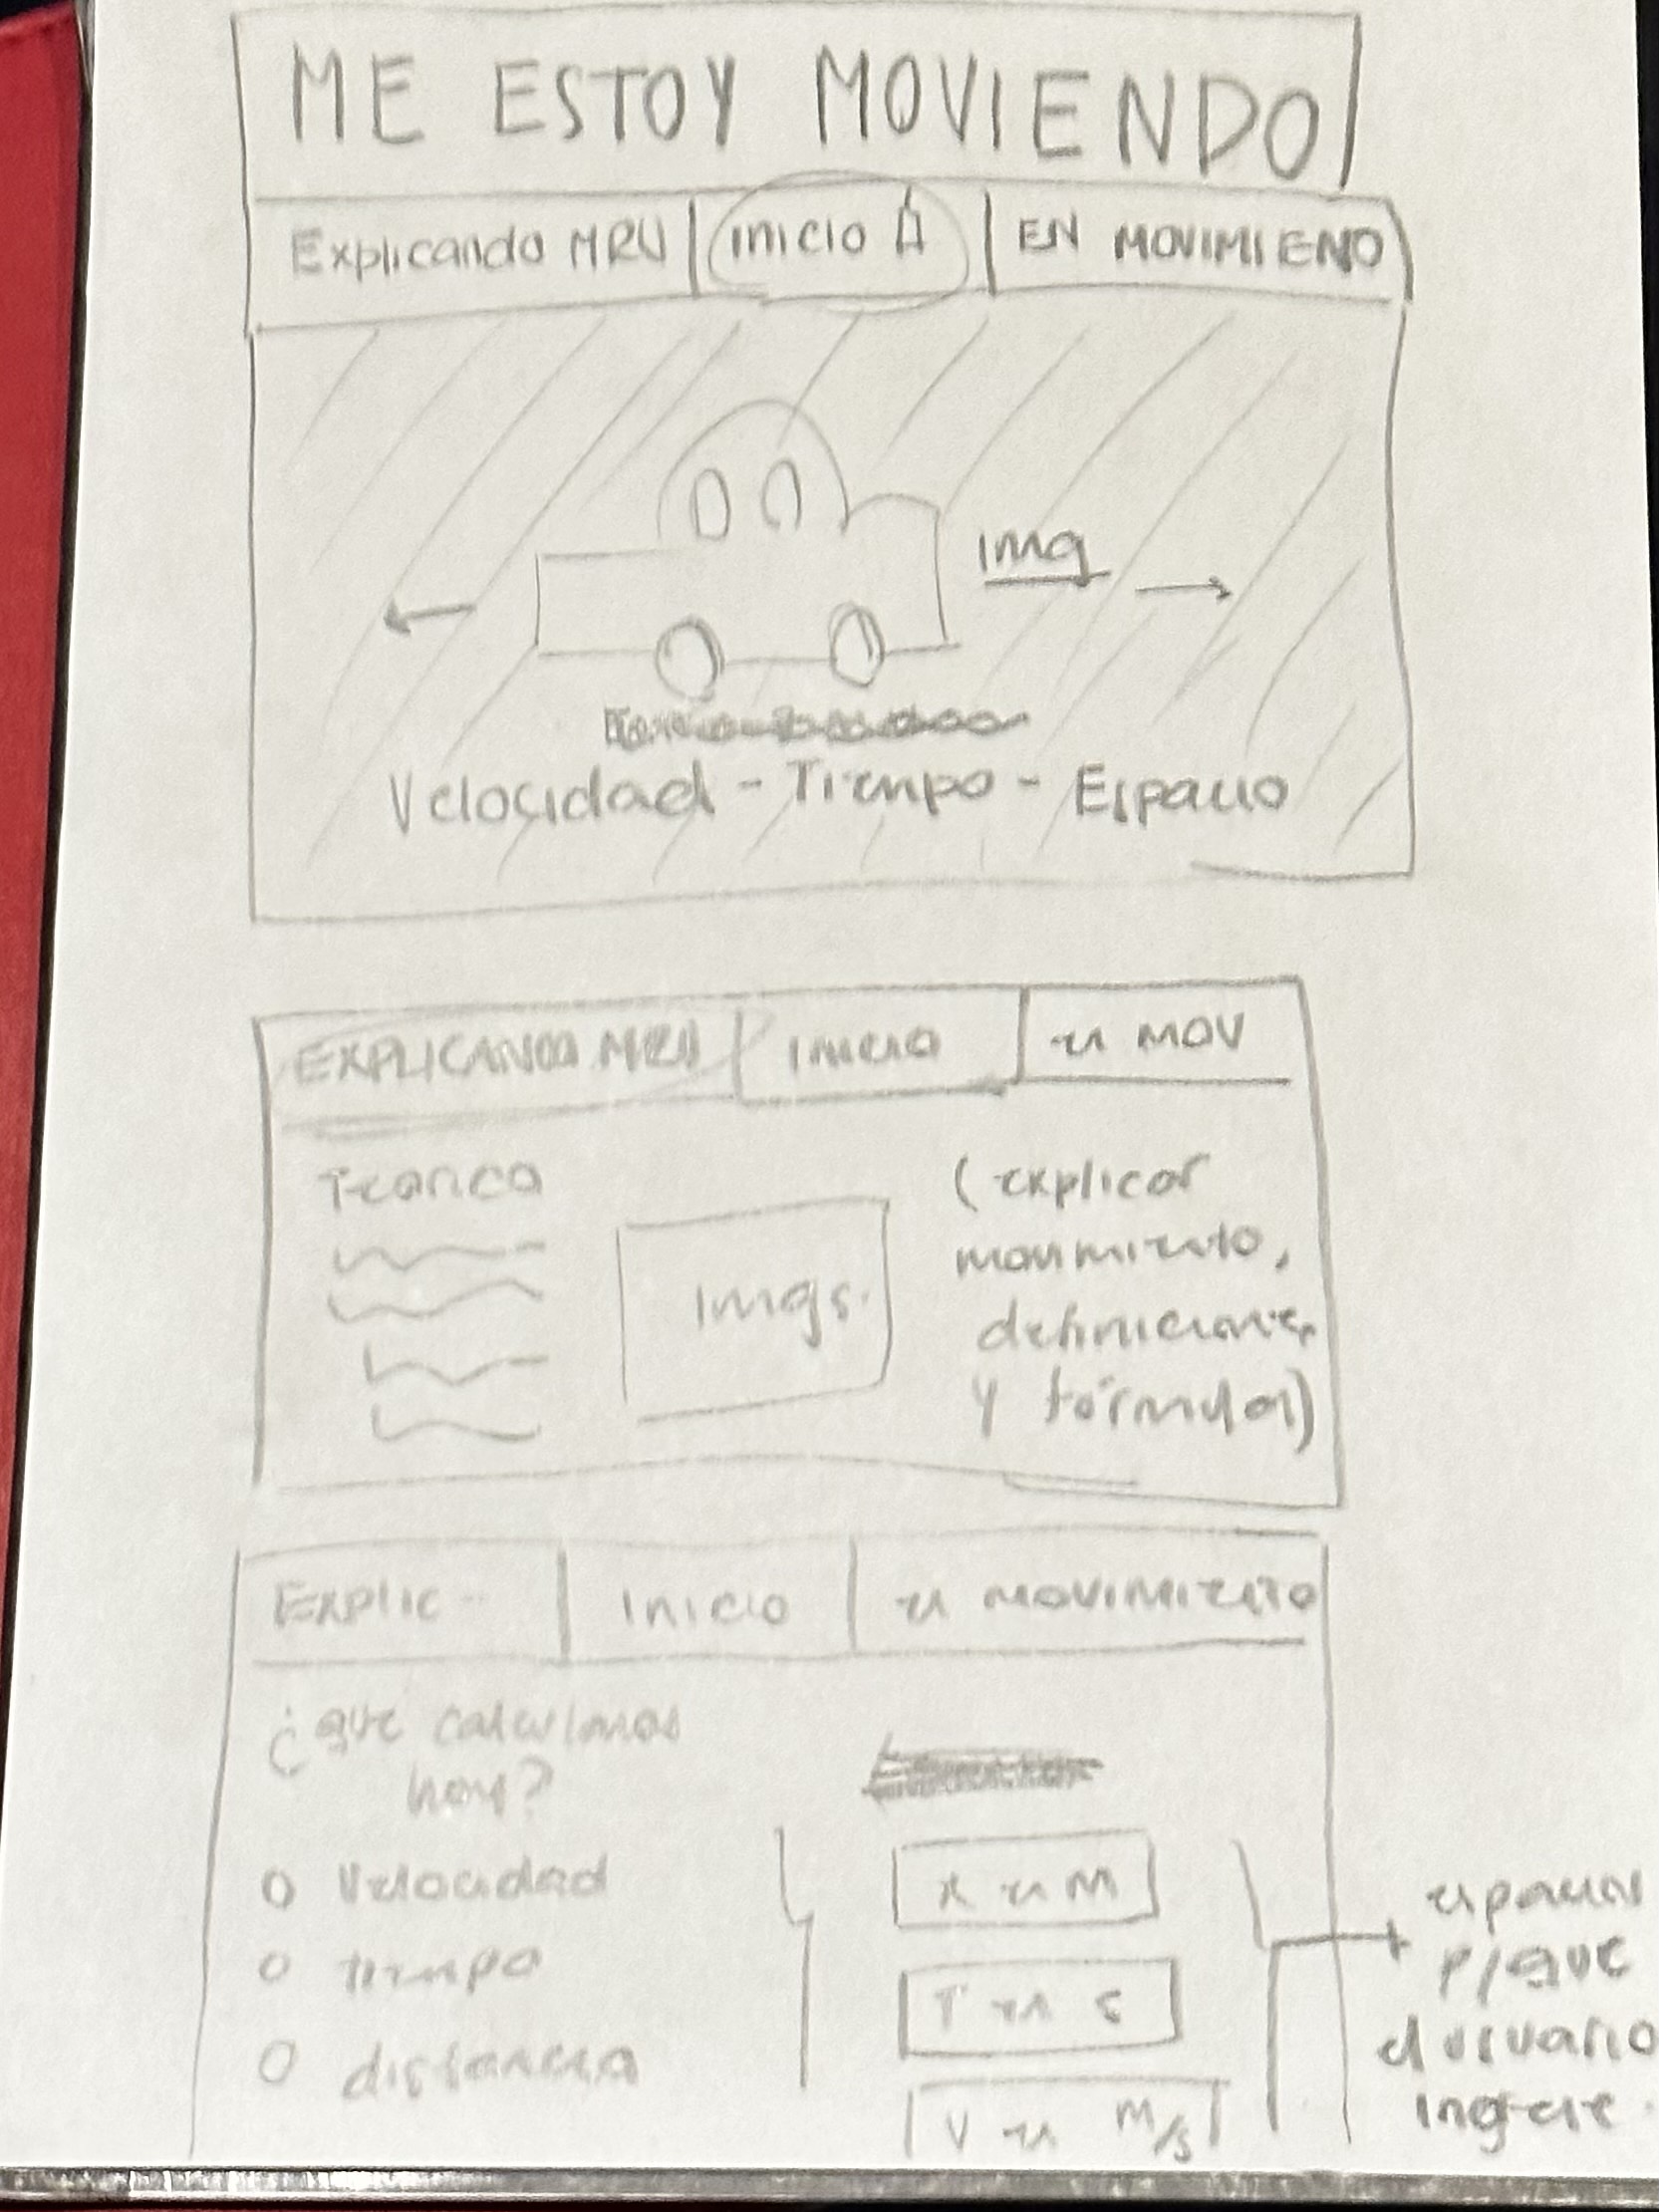 ME ESTOY MOVIENDO
Explicando MRU inicio EN MOVIMIENO
img
Velocidad - Tiempo - Espacio
EXPLICANDO MRU Inicio en MOV
Teorico
Imgs.
(explicar
movimiento,
definiciones
y fórmulas)
Explic-- Inicio en movimiento
¿que calculamos
hoy?
Velocidad
tiempo
distancia
X en M
T en s
V en M/s
espacios
p/que
el usuario
ingrese.